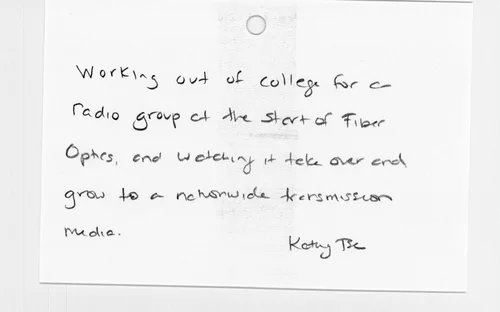 Working out of college for a
radio group at the start of Fiber
Optics, and watching it take over and
grow to a nationwide transmission
media.
Kathy Tse